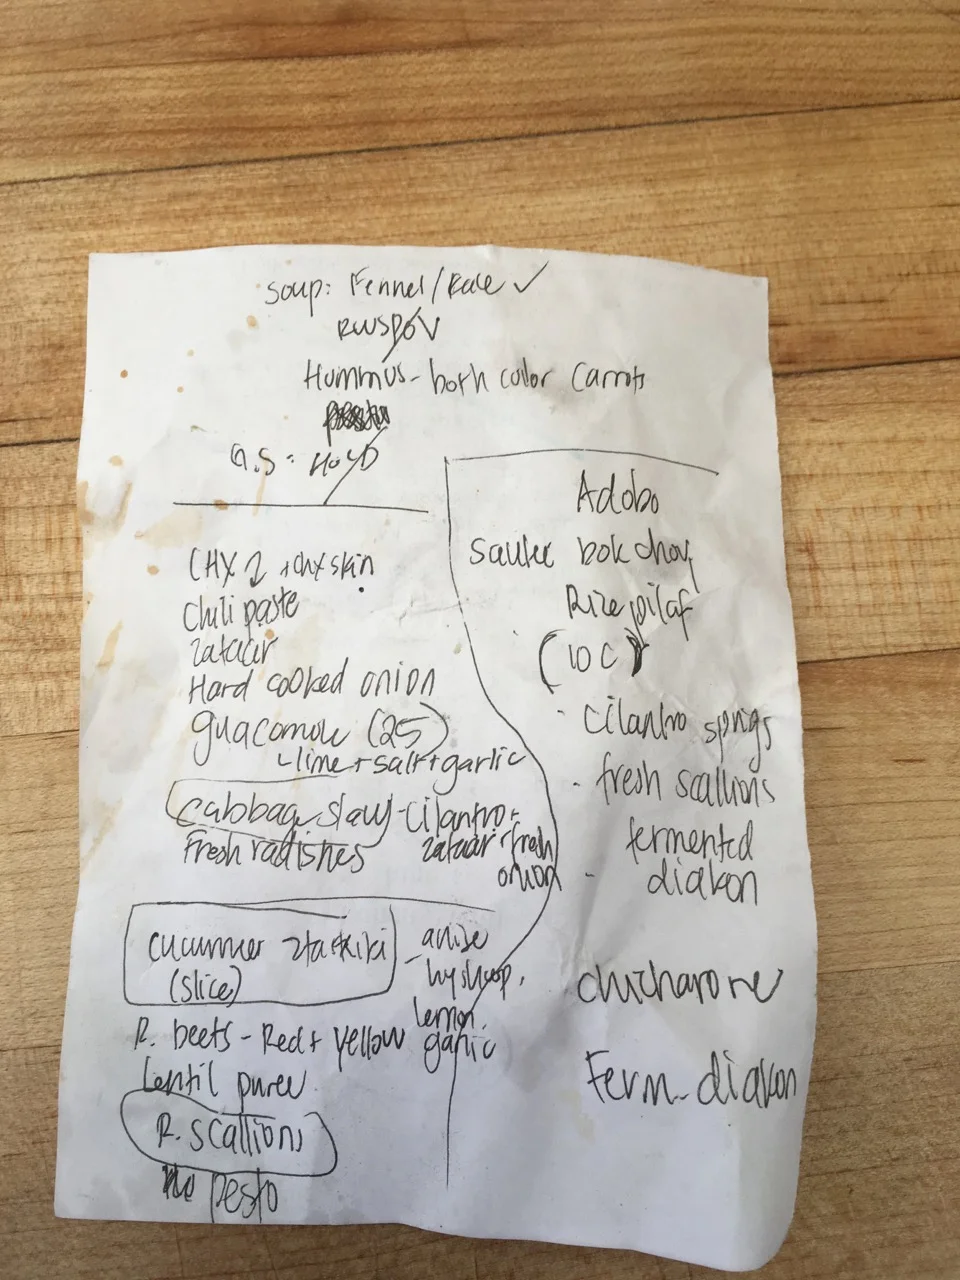 Soup: Fennel/Kale ✓
Hummus - both color carrots
G.S - HOYD
CHX 2 + chx skin
Chili paste
Zataar
Hard cooked onion
guacamole (25)
- lime + salt + garlic
Cabbage slaw - cilantro +
zataar + fresh
onion
Fresh radishes
cucumner ztatkiki
(slice)
- anise
hyshopp,
lemon,
garlic
R. beets - Red + Yellow
Lentil puree
R. scallions
pesto
Adobo
Sautee bok choy
Rize pilaf
- cilantro sprigs
- fresh scallions
- fermented
diakon
chicharone
Ferm. diakon